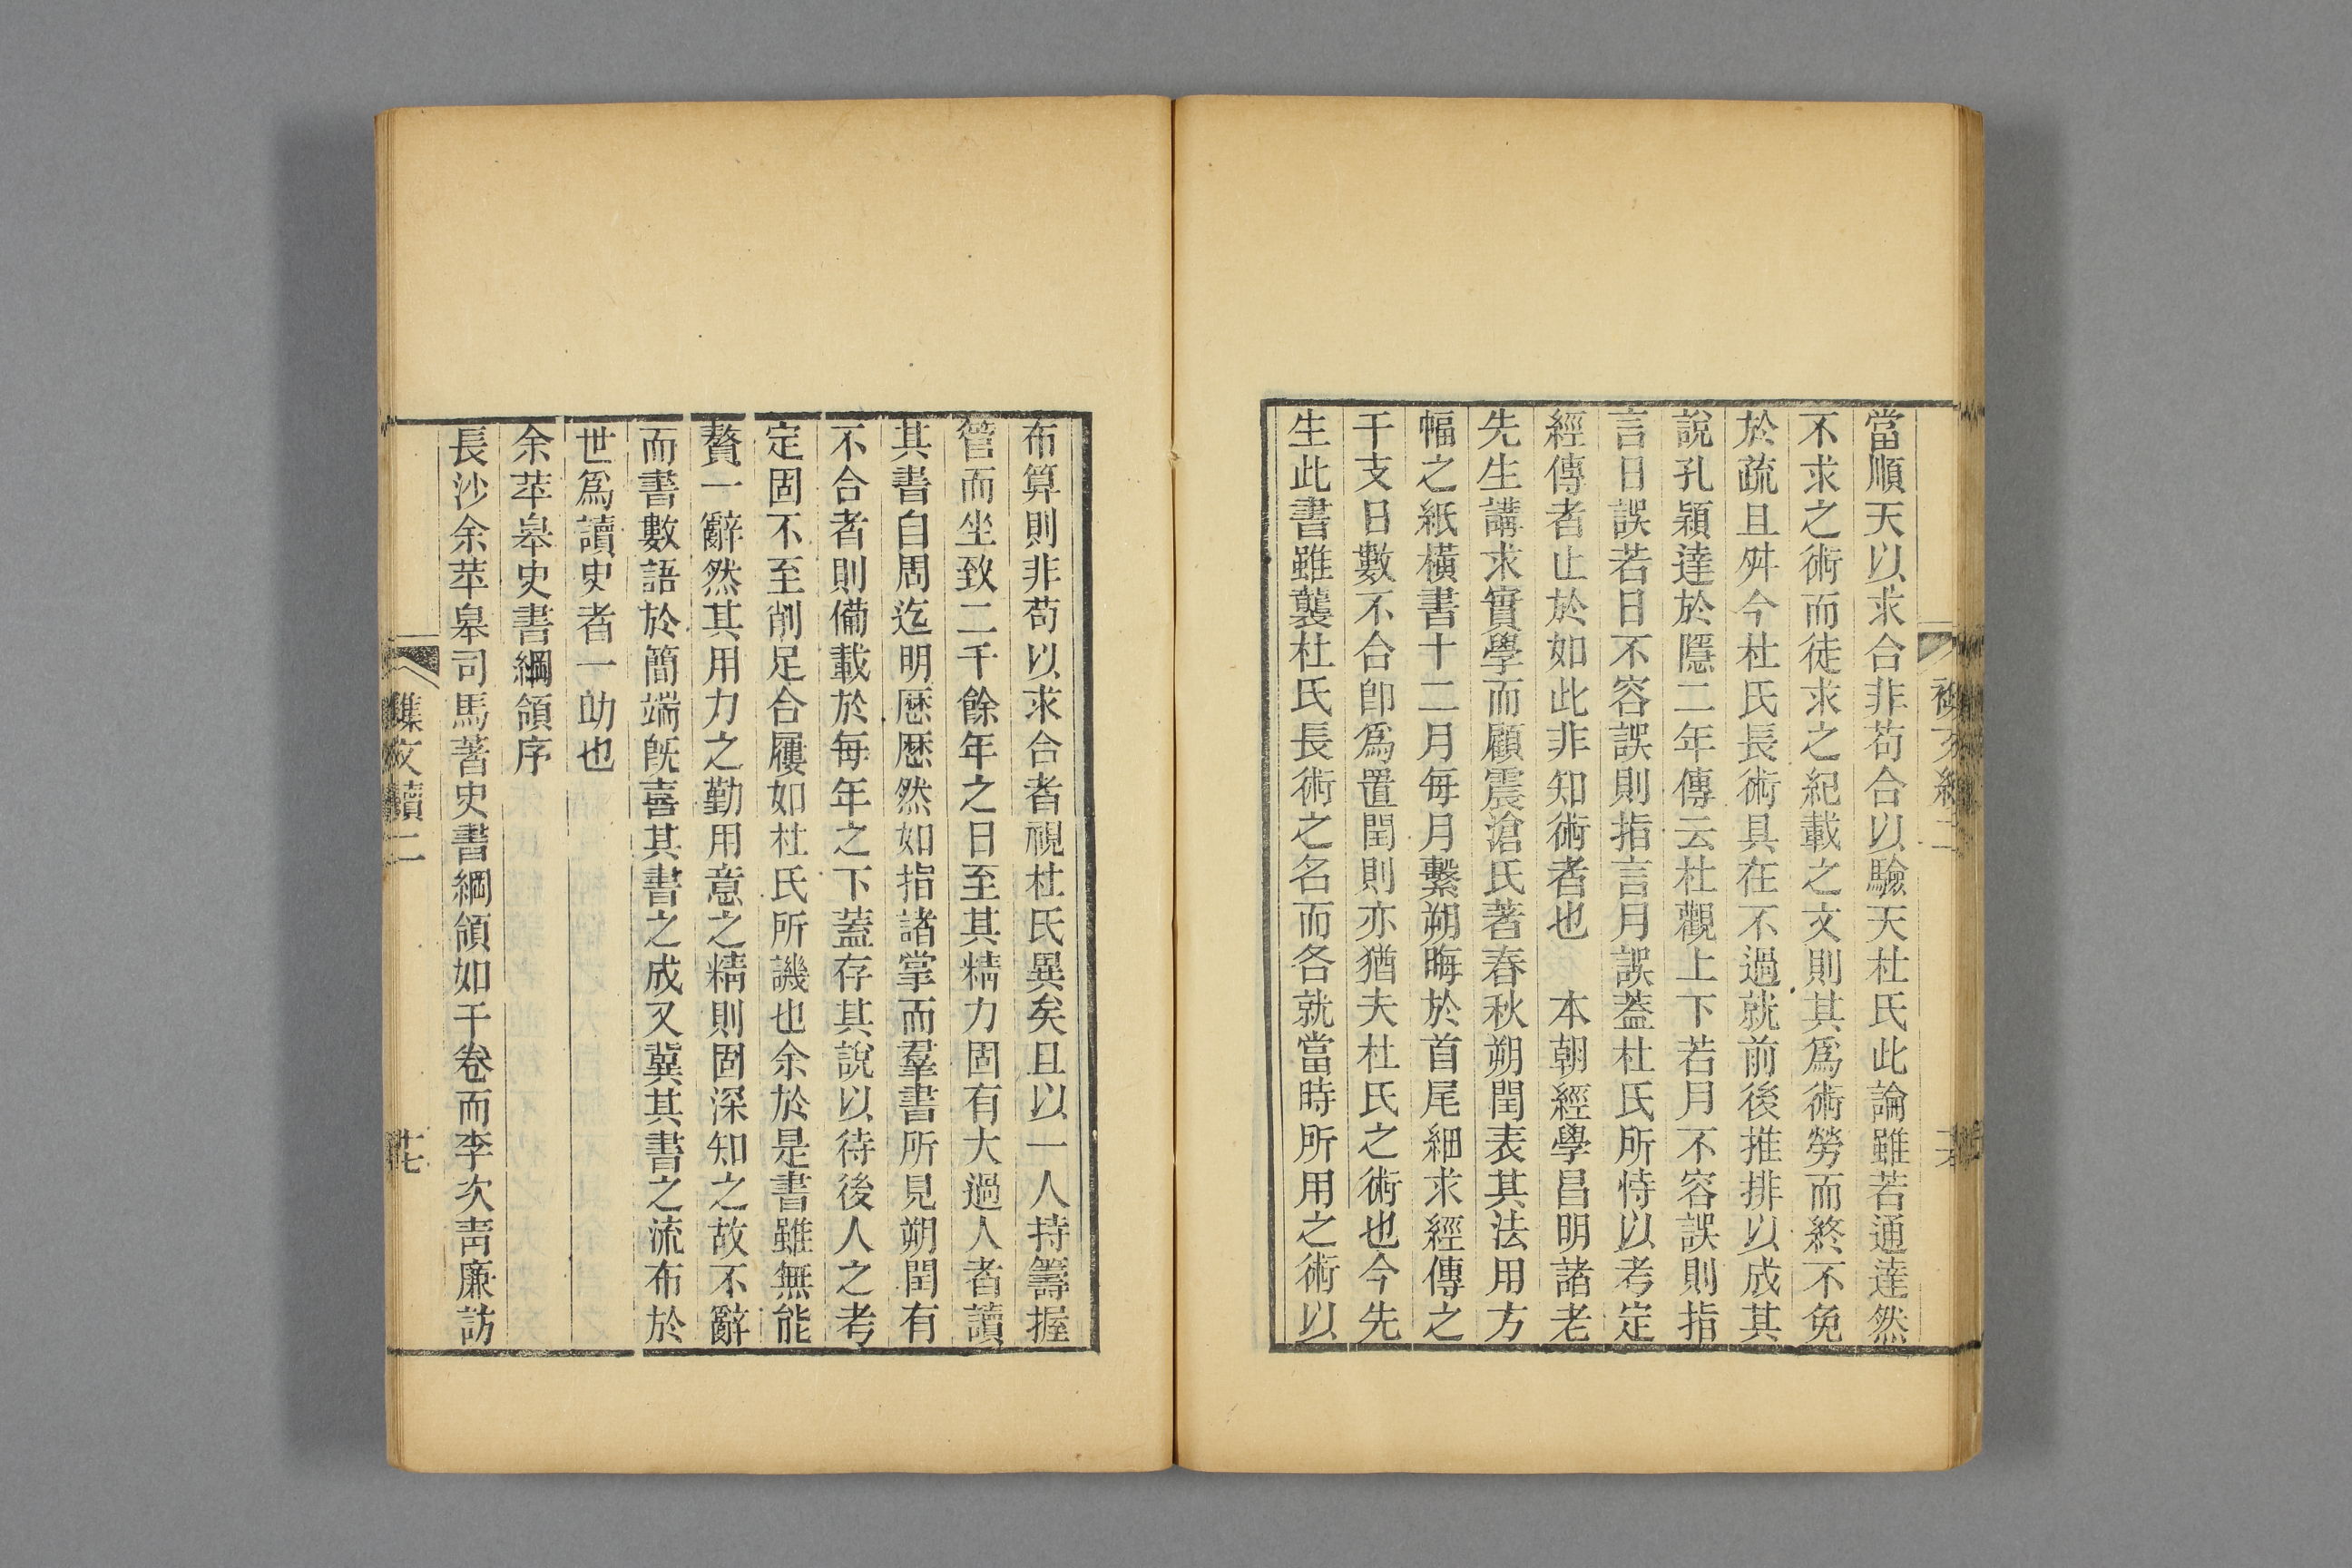 當順天以求合非苟合以驗天杜氏此論雖若通達然
不求之術而徒求之紀載之文則其爲術勞而終不免
於疏且舛今杜氏長術具在不過就前後推排以成其
說孔穎達於隱二年傳云杜觀上下若月不容誤則指
言日誤若日不容誤則指言月誤蓋杜氏所恃以考定
經傳者止於如此非知術者也　本朝經學昌明諸老
先生講求實學而顧震滄氏著春秋朔閏表其法用方
幅之紙橫書十二月每月繫朔晦於首尾細求經傳之
干支日數不合卽爲置閏則亦猶夫杜氏之術也今先
生此書雖襲杜氏長術之名而各就當時所用之術以
布算則非苟以求合者視杜氏異矣且以一人持籌握
管而坐致二千餘年之日至其精力固有大過人者讀
其書自周迄明歷歷然如指諸掌而羣書所見朔閏有
不合者則備載於每年之下蓋存其說以待後人之考
定固不至削足合屨如杜氏所譏也余於是書雖無能
贅一辭然其用力之勤用意之精則固深知之故不辭
而書數語於簡端旣喜其書之成又冀其書之流布於
世爲讀史者一助也
余苹皋史書綱領序
長沙余苹皋司馬著史書綱領如干卷而李次靑廉訪
襍文續二
十七